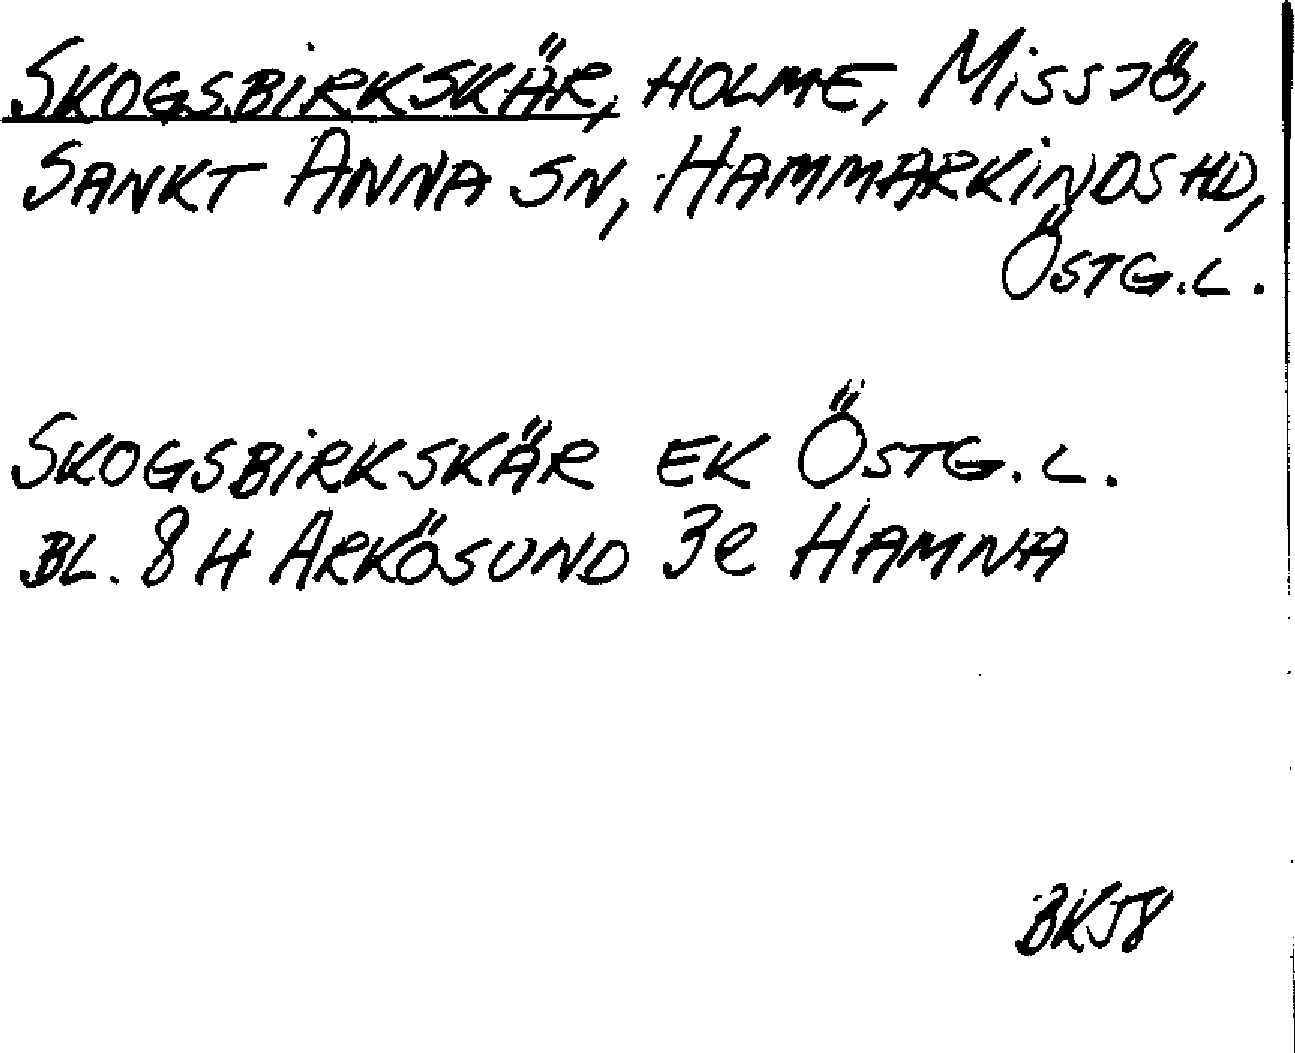 SKOGSBIRKSKÄR, HOLME, MISSJÖ,
SANKT ANNA SN, HAMMARKINDS HD,
ÖSTG.L.
SKOGSBIRKSKÄR EK ÖSTG.L.
BL. 8H ARKÖSUND 3e HAMNA